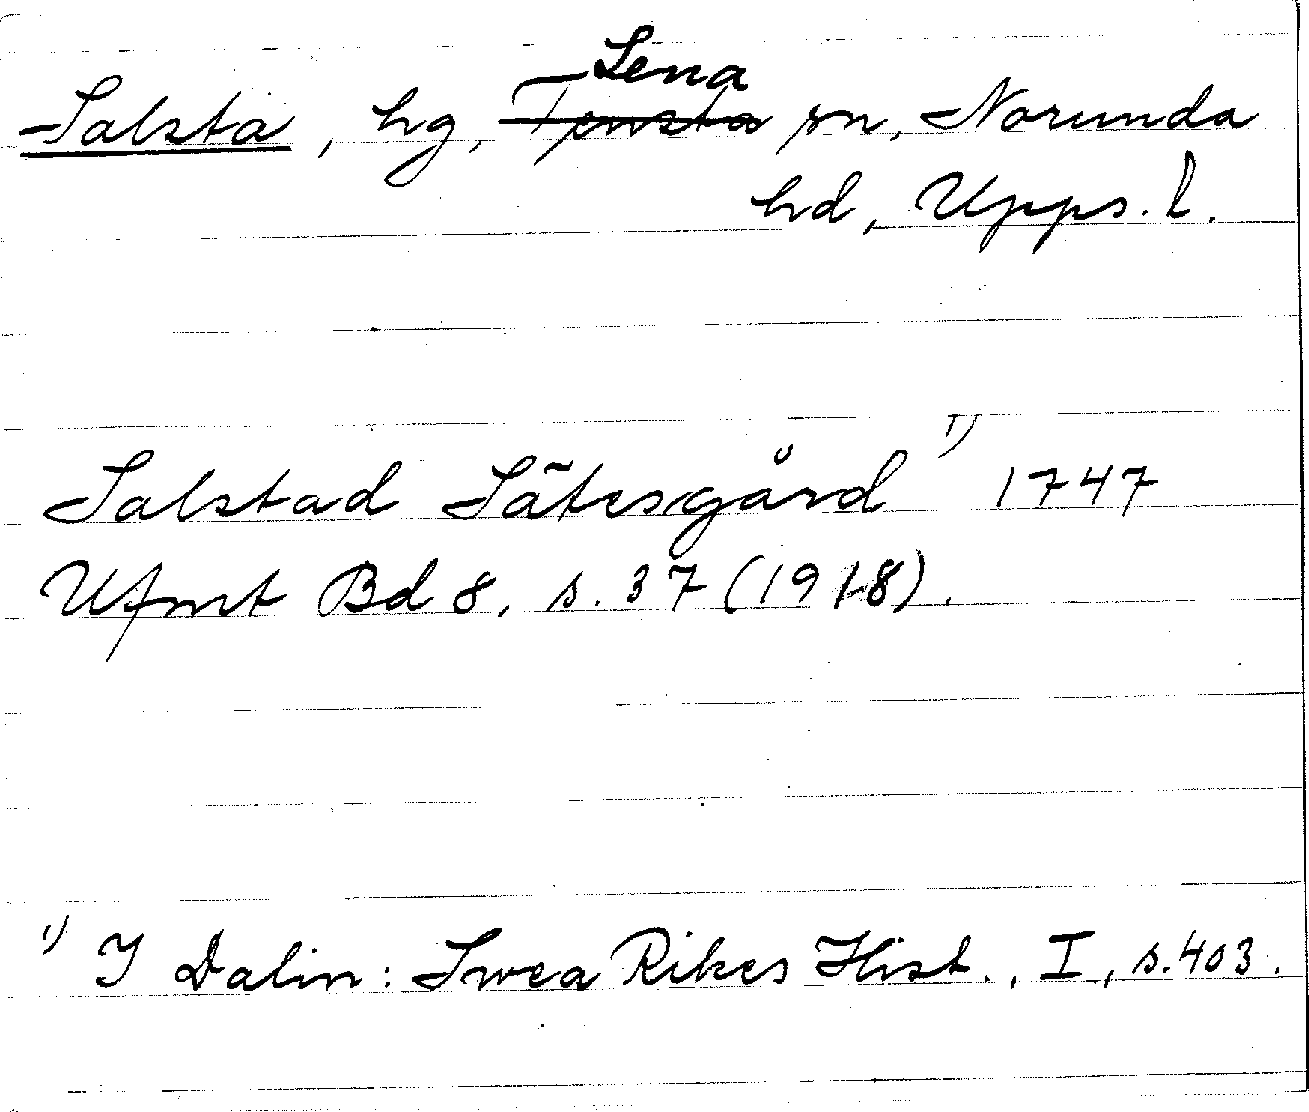 Salsta, hg, Tensta Lena sn, Norunda
hd, Upps. l.
Salstad Sätesgård 1) 1747
Ufmt Bd 8, s. 37 (1918).
1) I Dalin: Swea Rikes Hist., I, s. 403.